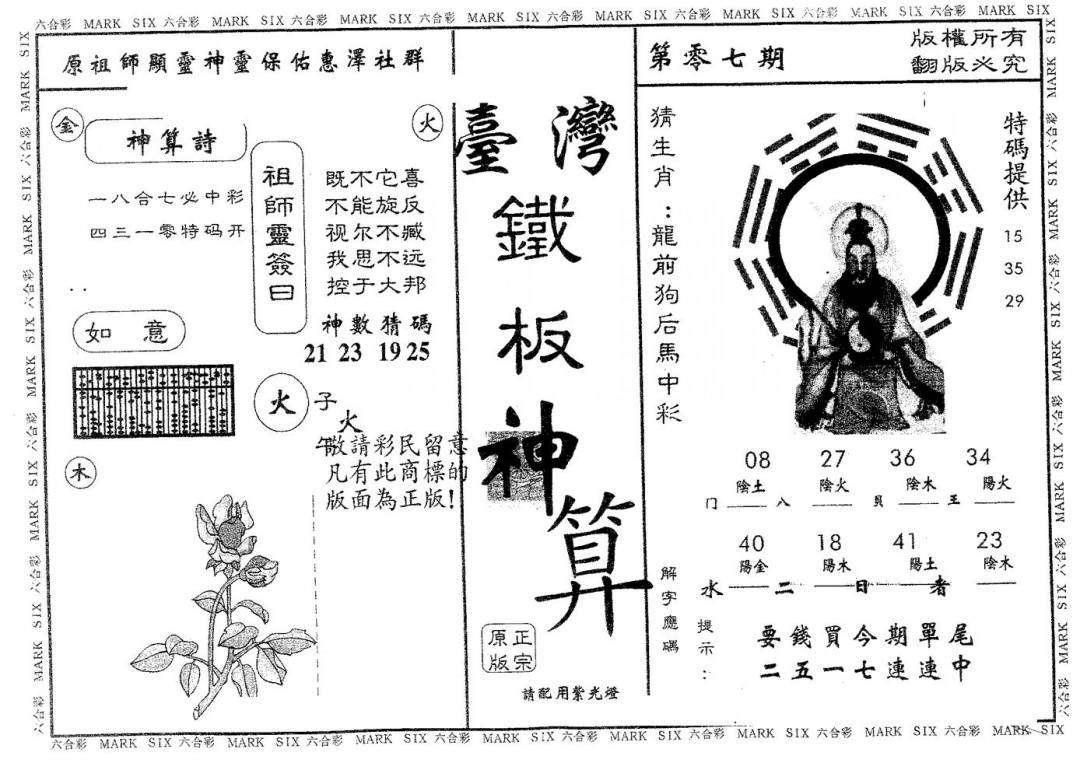 六合彩 MARK SIX 六合彩 MARK SIX 六合彩 MARK SIX 六合彩 MARK SIX 六合彩 MARK SIX 六合彩 MARK SIX 六合彩 MARK SIX 六合彩 MARK SIX
原祖師顯靈神靈保佑惠澤社群
金
神算詩
火
一八合七必中彩
四三一零特码开
祖師靈簽曰
既不它喜
不能旋反
视尔不臧
我思不远
控于大邦
神數猜碼
21 23 19 25
如意
火
子
火
午
敬請彩民留意
凡有此商標的
版面為正版!
木
臺灣
鐵
板
神
算
正宗
原版
請配用紫光燈
第零七期
版權所有
翻版必究
猜生肖:龍前狗后馬中彩
特碼提供
15
35
29
08 27 36 34
陰土 陰火 陰木 陽火
门 八 貝 王
40 18 41 23
陽金 陽木 陽土 陰木
水 二 日 者
解字應碼
提示:
要錢買今期單尾
二五一七連連中
六合彩 MARK SIX 六合彩 MARK SIX 六合彩 MARK SIX 六合彩 MARK SIX 六合彩 MARK SIX 六合彩 MARK SIX 六合彩 MARK SIX 六合彩 MARK SIX